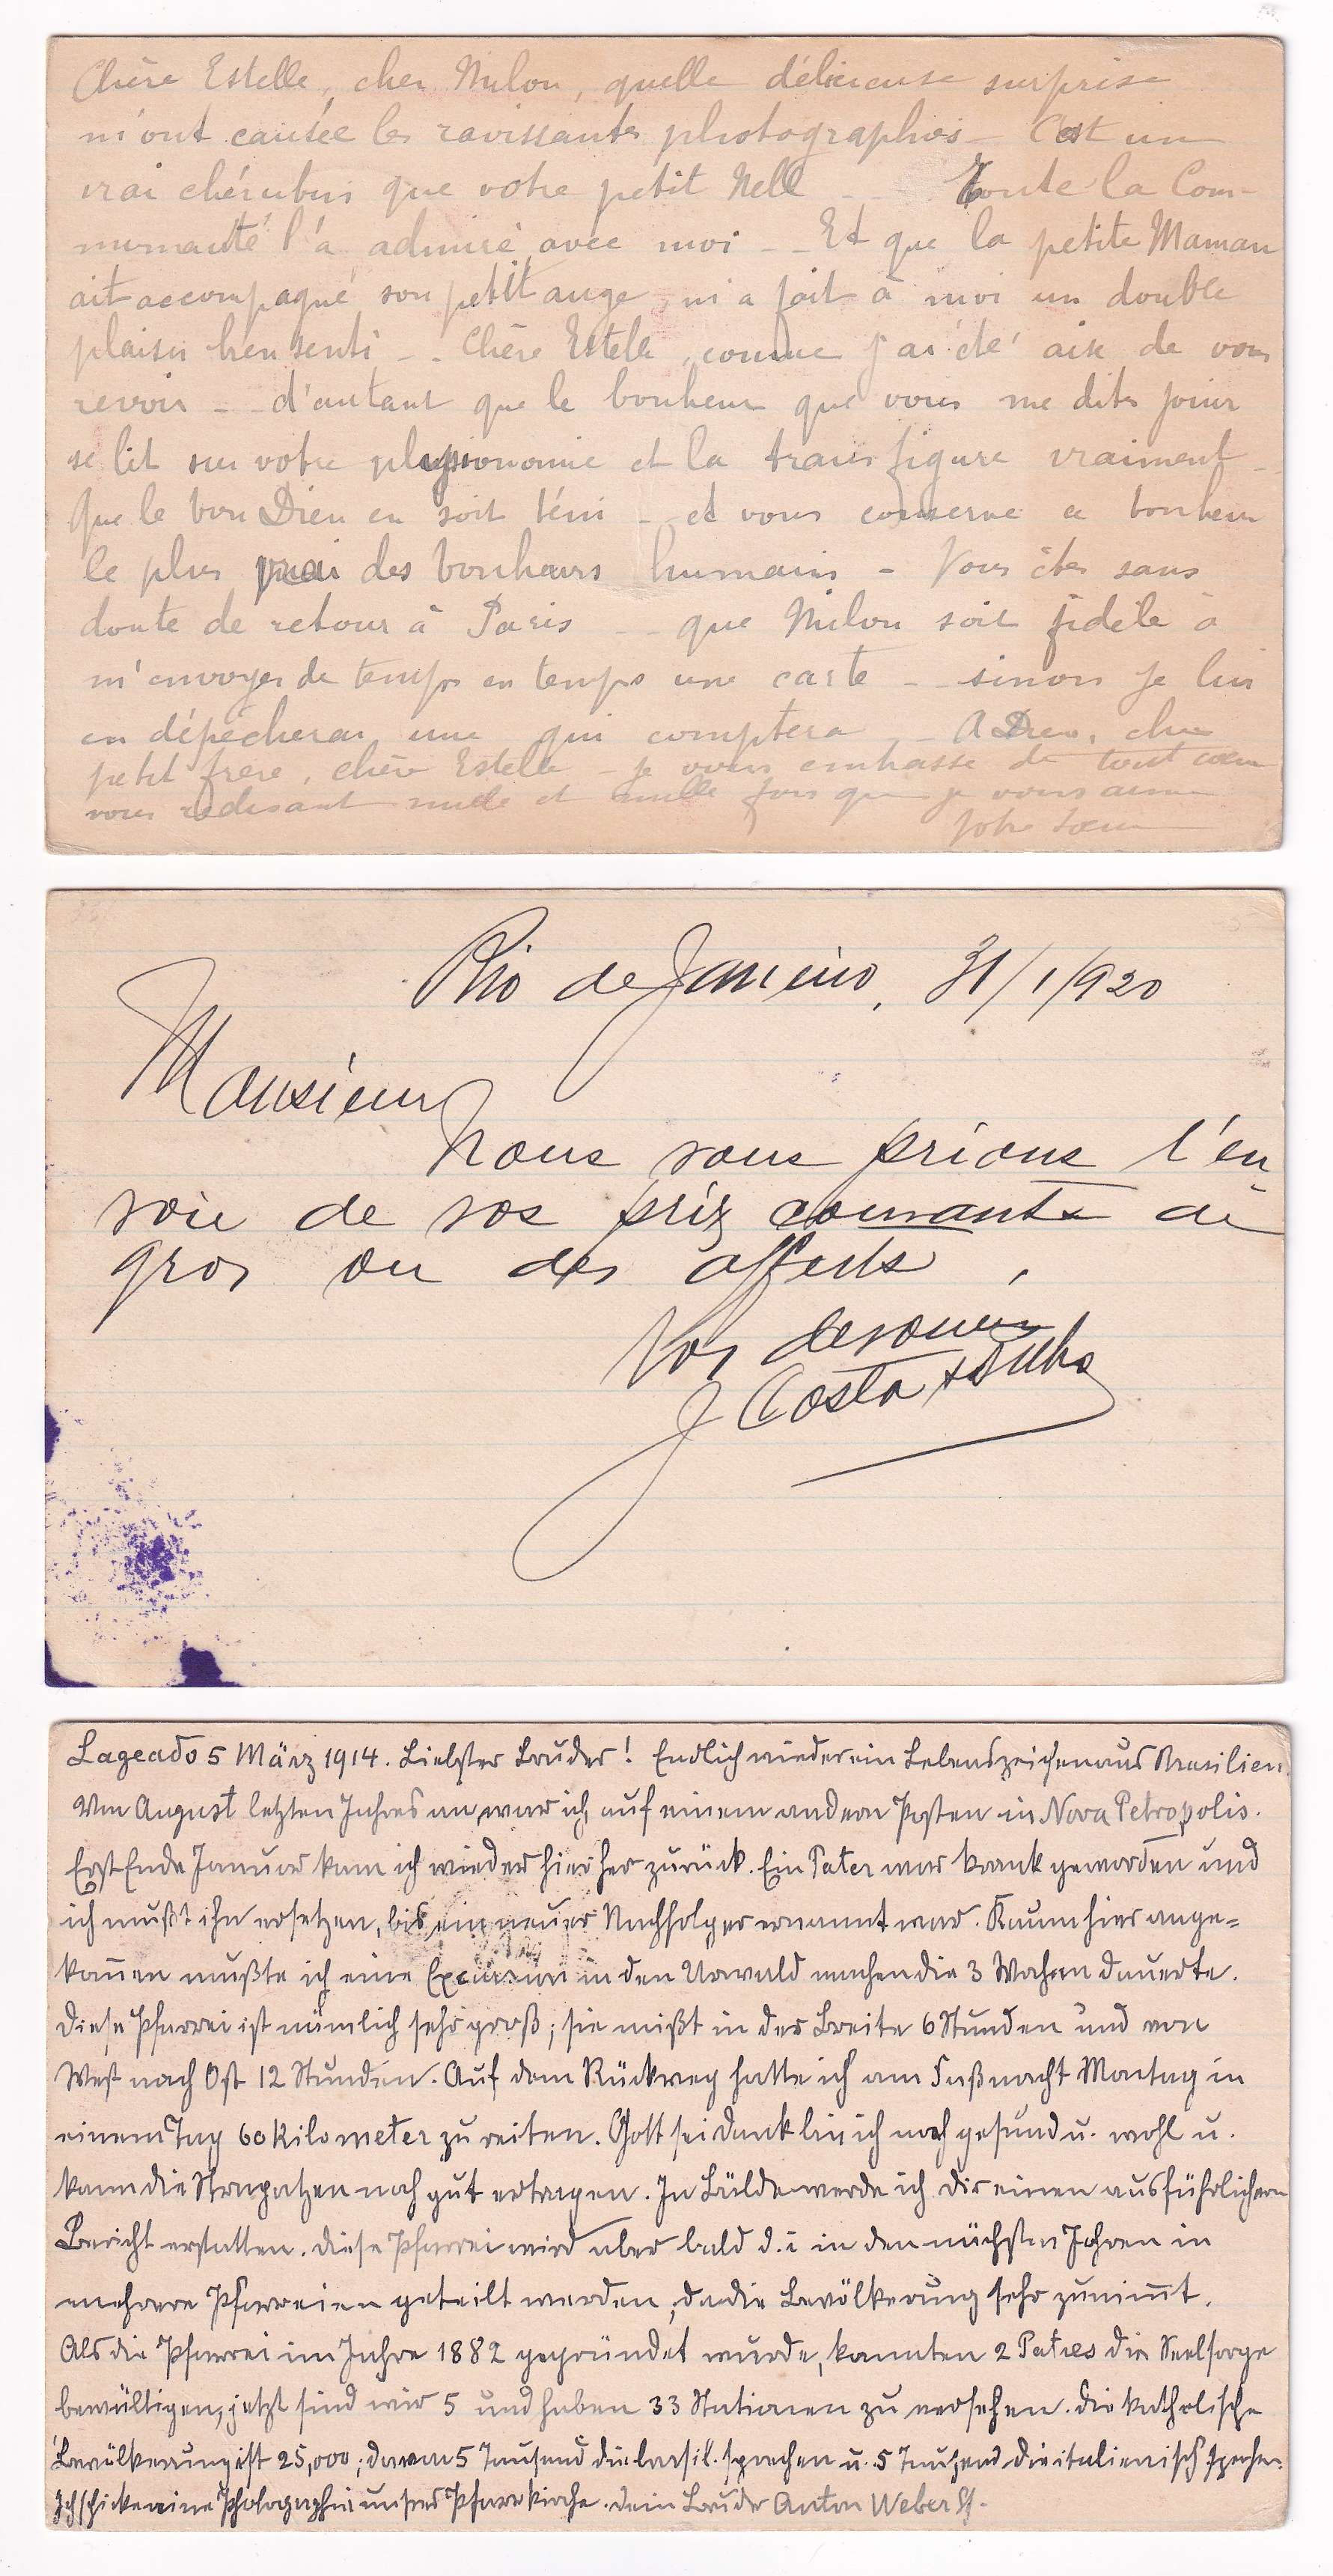 Chère Estelle, cher Milon, quelle délicieuse surprise
m'ont causée les ravissantes photographies — C'est un
vrai chérubin que votre petit Nell — Toute la Com-
munauté l'a admiré avec moi — Et que la petite Maman
ait accompagné son petit ange, m'a fait à moi un double
plaisir bien senti — Chère Estelle, comme j'ai été aise de vous
revoir — d'autant que le bonheur que vous me dites jouir
se lit sur votre physionomie et la transfigure vraiment —
Que le bon Dieu en soit béni — et vous conserve ce bonheur
le plus vrai des bonheurs humains — Vous êtes sans
doute de retour à Paris — que Milon soit fidèle à
m'envoyer de temps en temps une carte — sinon je lui
en dépêcherai une qui comptera — A Dieu, cher
petit frère, chère Estelle — je vous embrasse de tout cœur
vous redisant mille et mille fois que je vous aime
Votre sœur
Rio de Janeiro, 31/1/920
Monsieur
Nous vous prions l'en
voie de vos prix courants de
gros ou des offerts.
Vos
J Costa &
Lageado 5 März 1914. Liebster Bruder! Endlich wieder ein Lebenszeichen aus Brasilien.
Von August letzten Jahres an war ich auf einem andern Posten in Nova Petropolis.
Erst Ende Januar kam ich wieder hierher zurück. Ein Pater war krank geworden und
ich mußt ihn ersetzen, bis ein neuer Nachfolger ernannt war. Kaum hier ange=
kom̄en mußte ich eine Excursion in den Urwald machen die 3 Wochen dauerte.
Diese Pfarrei ist nämlich sehr groß; sie mißt in der Breite 6 Stunden und von
West nach Ost 12 Stunden. Auf dem Rückweg hatte ich am Faßnacht Montag in
einem Tag 60 Kilometer zu reiten. Gott sei Dank bin ich noch gesund u. wohl u.
kann die Strapatzen noch gut ertragen. In Bälde werde ich dir einen ausführlichern
Bericht erstatten. Diese Pfarrei wird aber bald d. i in den nächsten Jahren in
mehrere Pfarreien geteilt werden, da die Bevölkerung sehr zunim̄t.
Als die Pfarrei im Jahre 1882 gegründet wurde, konnten 2 Patres die Seelsorge
bewältigen, jetzt sind wir 5 und haben 33 Stationen zu versehen. Die katholische
Bevölkerung ist 25,000; davon 5 Tausend die brasil. sprechen u. 5 Tausend die italienisch sprechen.
Ich schicke eine Photographie unsres Pfarrkirche. Dein Bruder Anton Weber SJ.